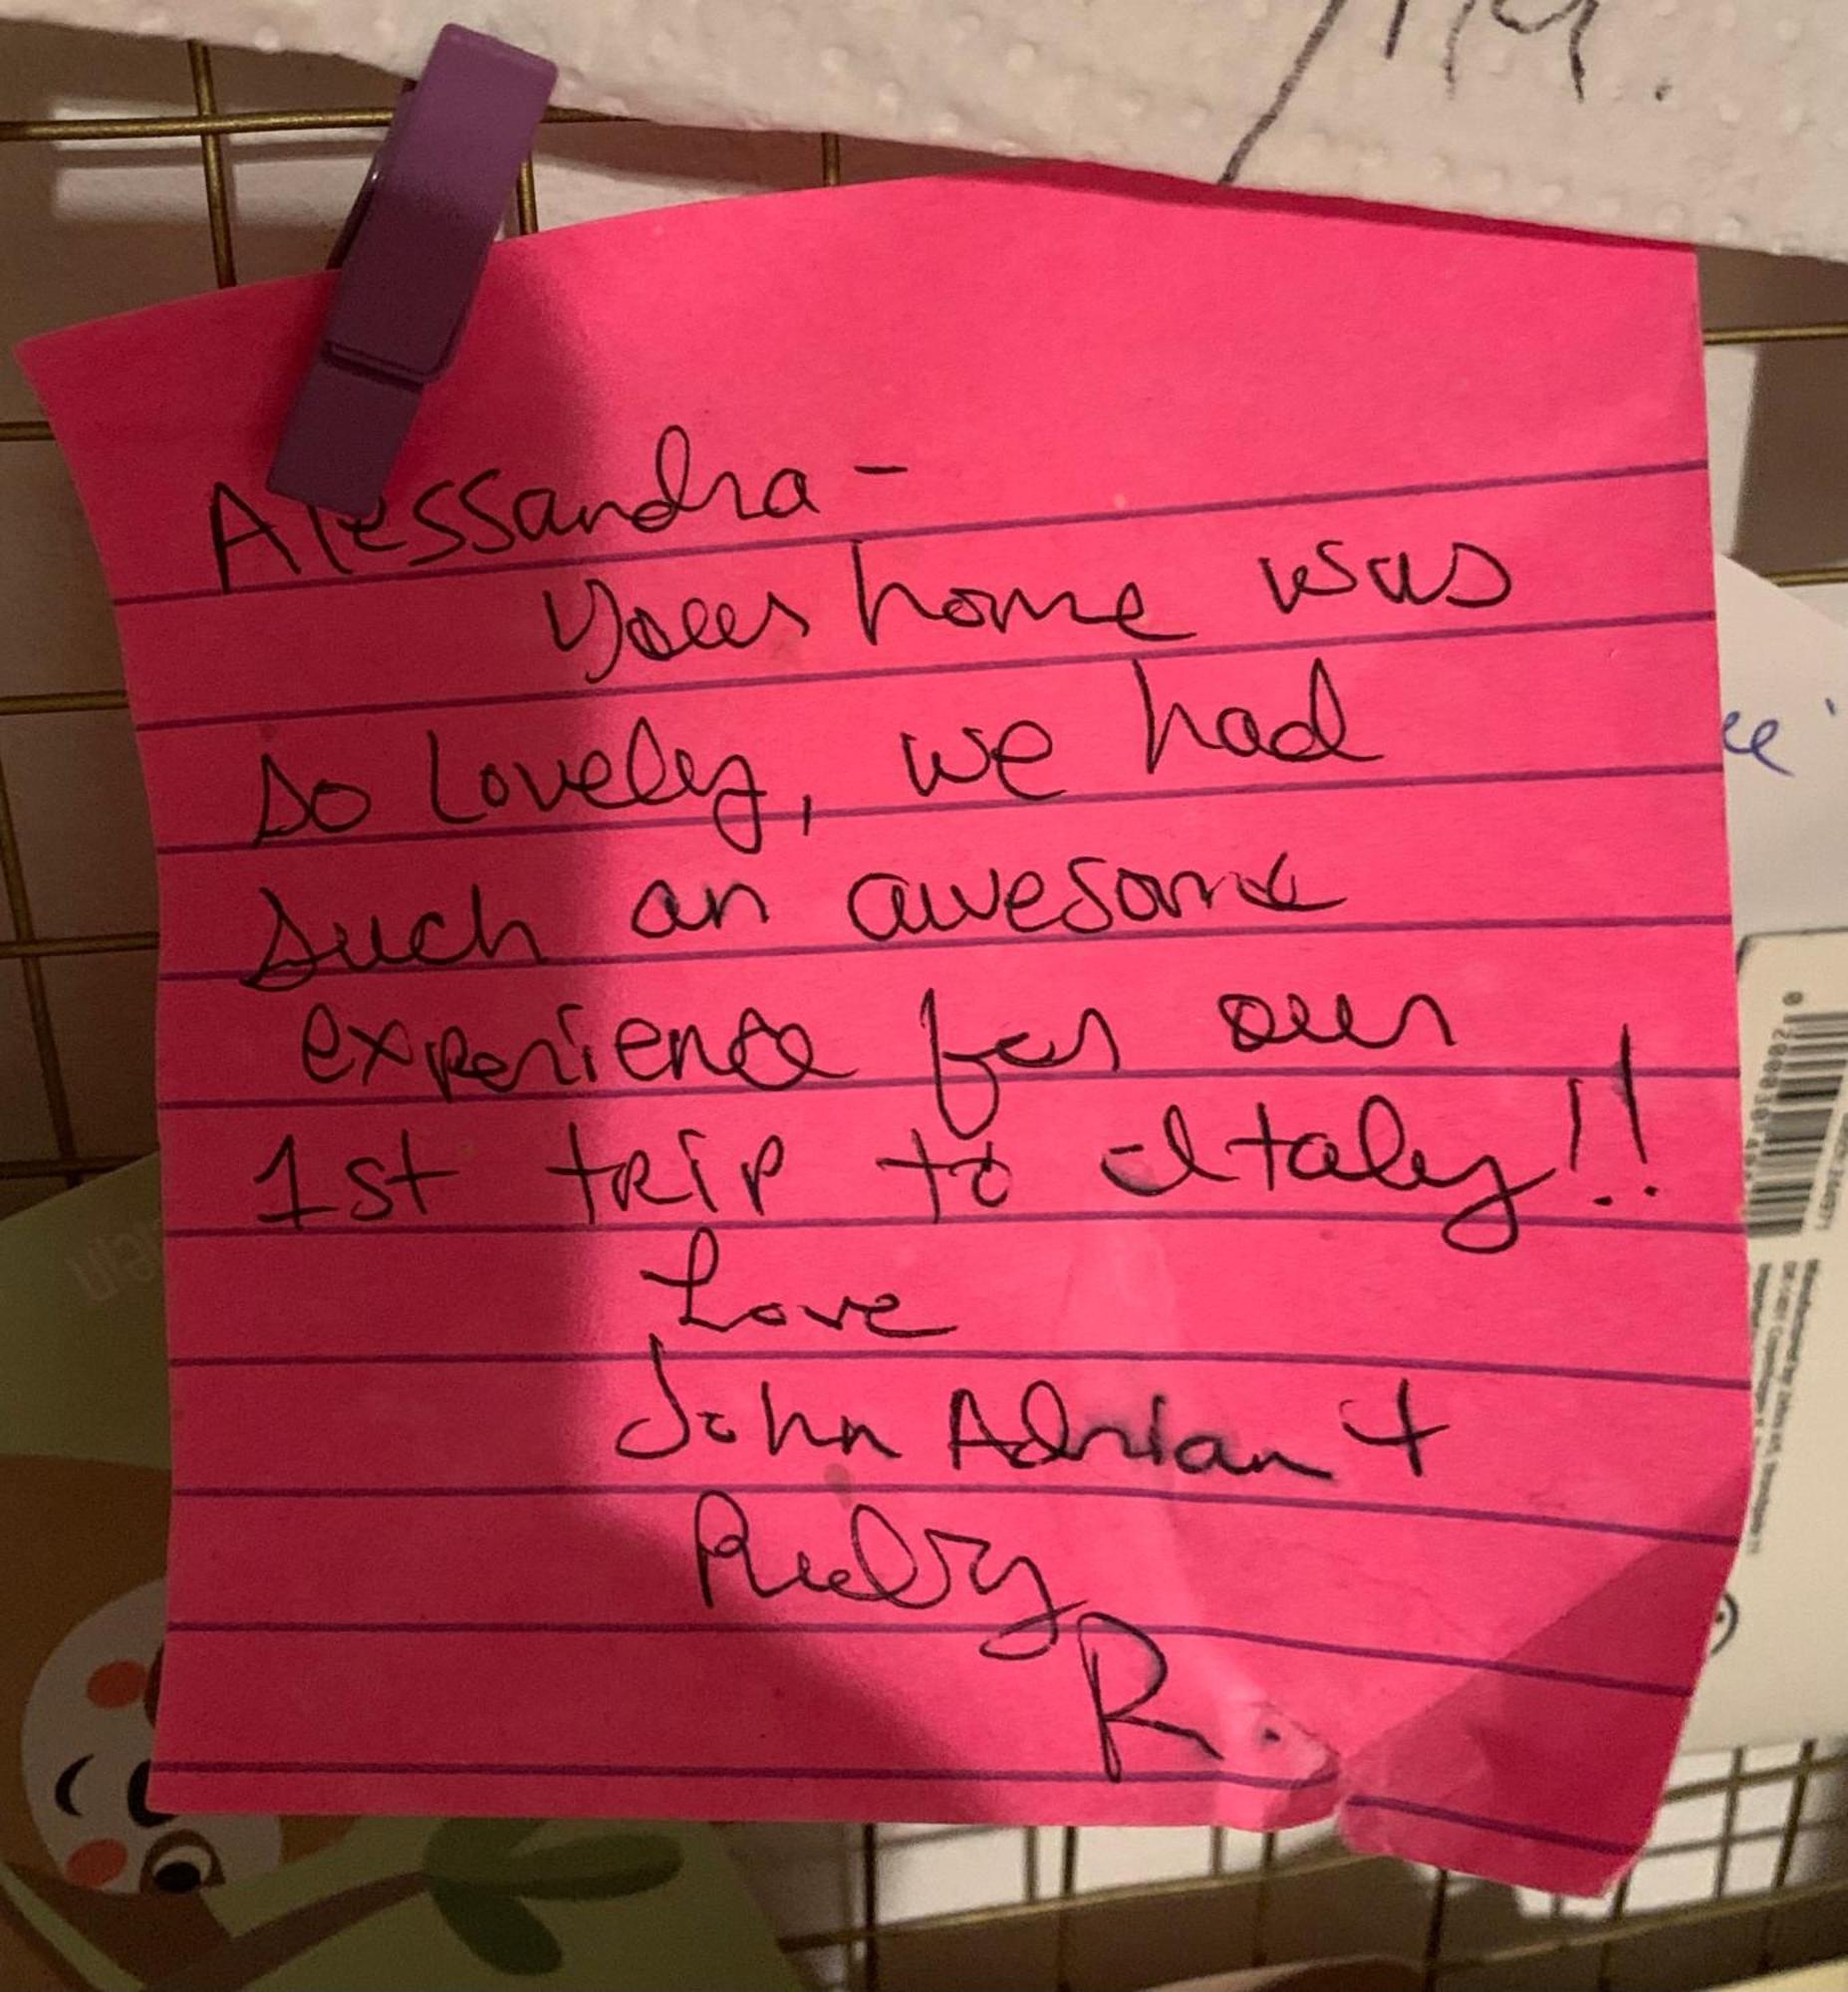 Alessandra -
Your home was
so lovely, we had
such an awesome
experience for our
1st trip to Italy!!
Love
John Adrian +
Ruby
R.